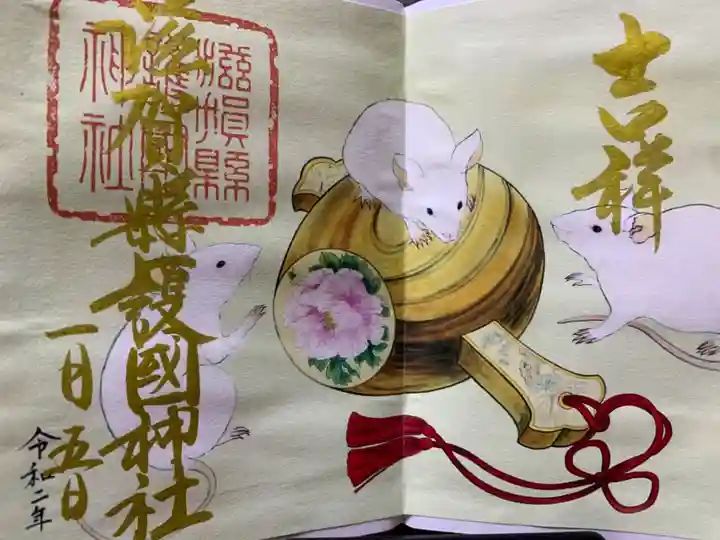 吉祥
滋賀縣護國神社
滋賀縣
護國
神社
一月五日
令和二年